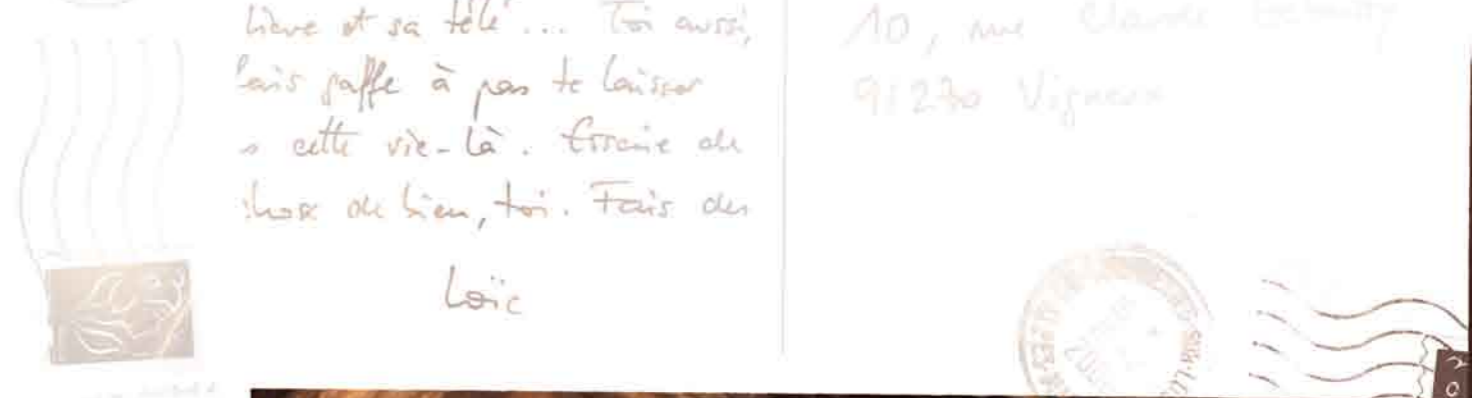 et sa télé... Toi aussi,
fais gaffe à pas te laisser
cette vie-là. Essaie de
chose de bien, toi. Fais des
Loïc
10, rue Claude Debussy
91270 Vigneux